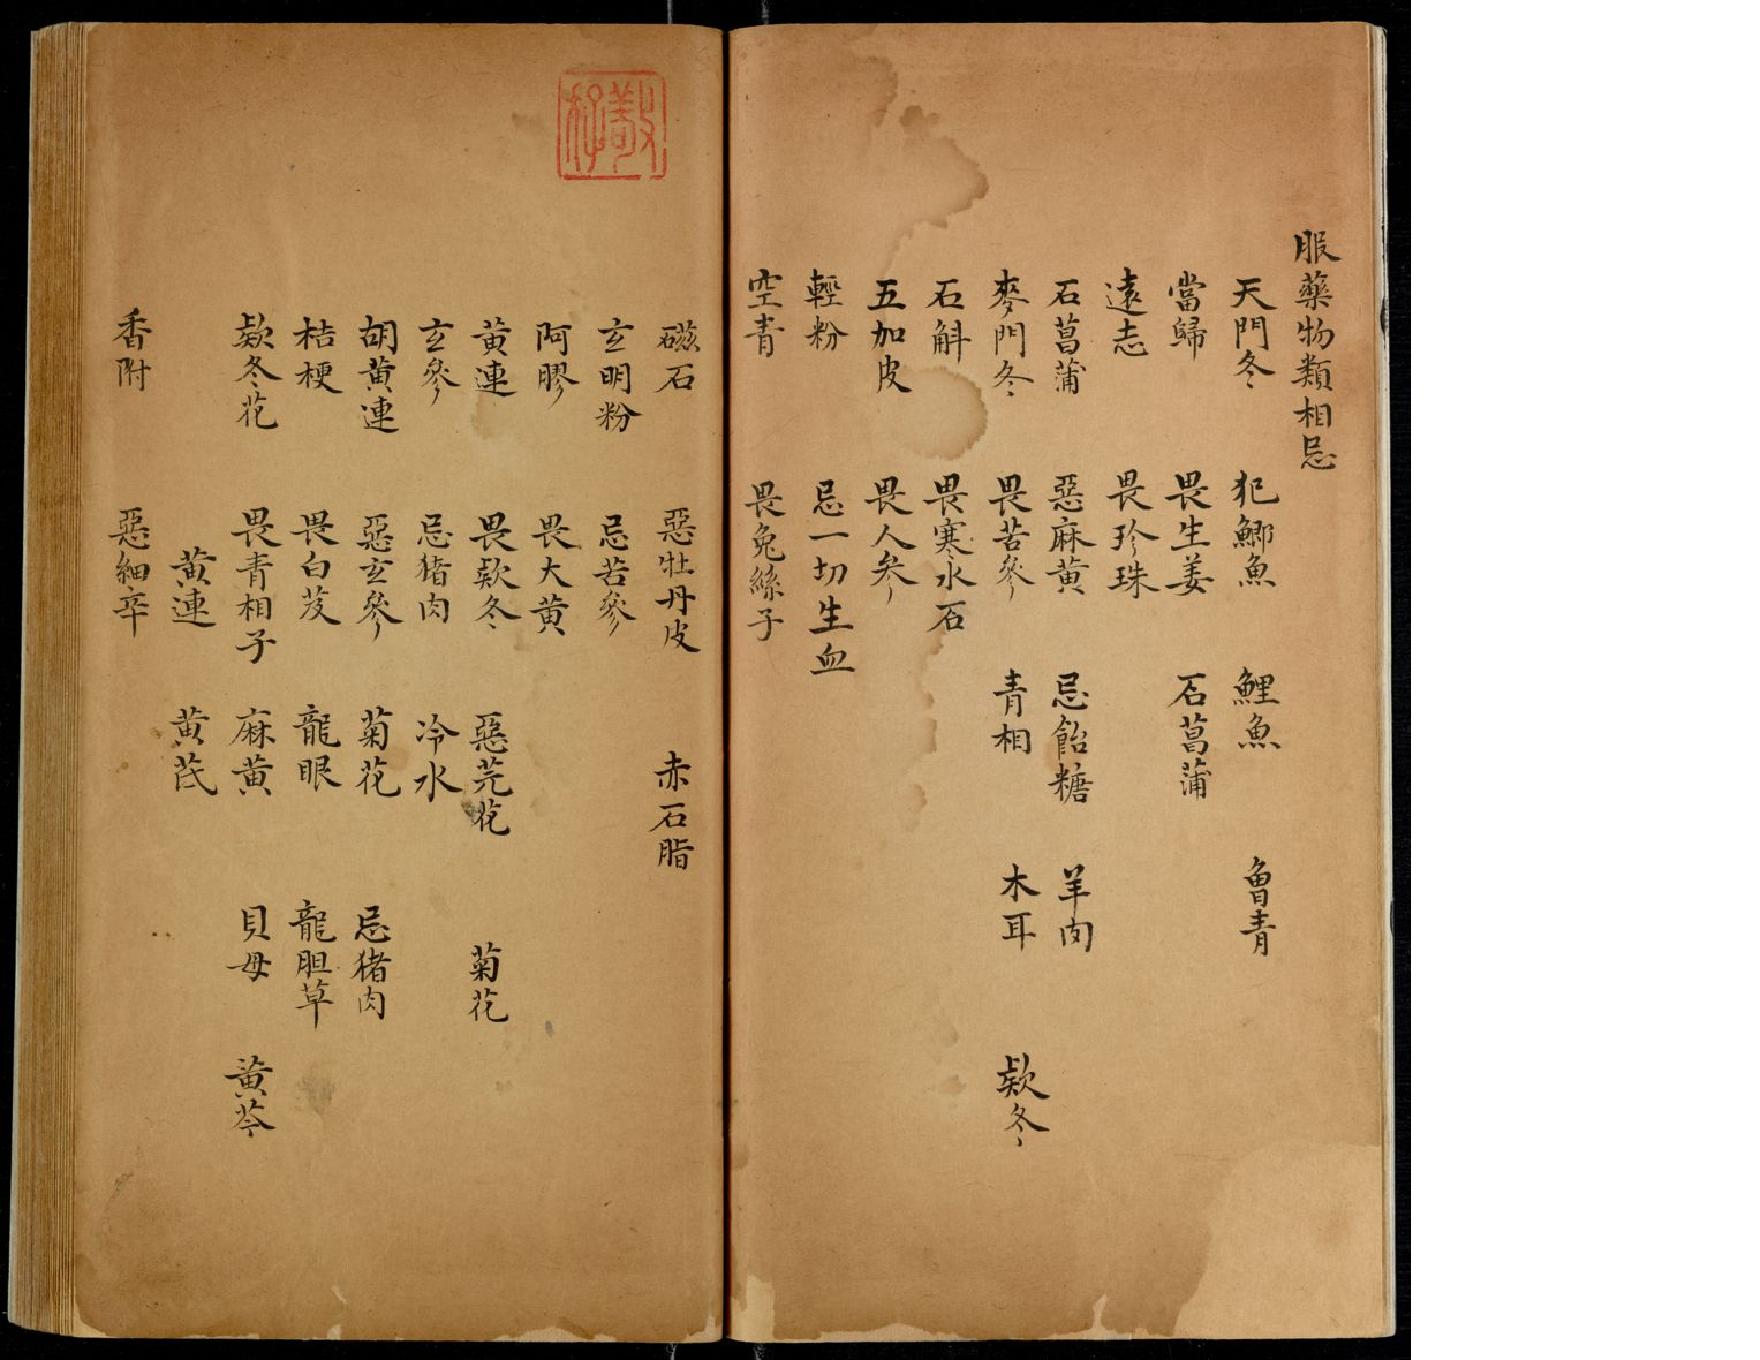 服藥物類相忌
天門冬 犯鯽魚 鯉魚 魯青
當歸 畏生姜 石菖蒲
遠志 畏珍珠
石菖蒲 惡麻黃 忌飴糖 羊肉
麥門冬 畏苦參 青相 木耳 欵冬
石斛 畏寒水石
五加皮 畏人參
輕粉 忌一切生血
空青 畏兔絲子
磁石 惡牡丹皮 赤石脂
玄明粉 忌苦參
阿膠 畏大黃
黃連 畏欵冬 惡芫花 菊花
玄參 忌猪肉 冷水
胡黃連 惡玄參 菊花 忌猪肉
桔梗 畏白芨 龍眼 龍胆草
欵冬花 畏青相子 麻黄 貝母 黃芩
黃連 黃芪
香附 惡細辛